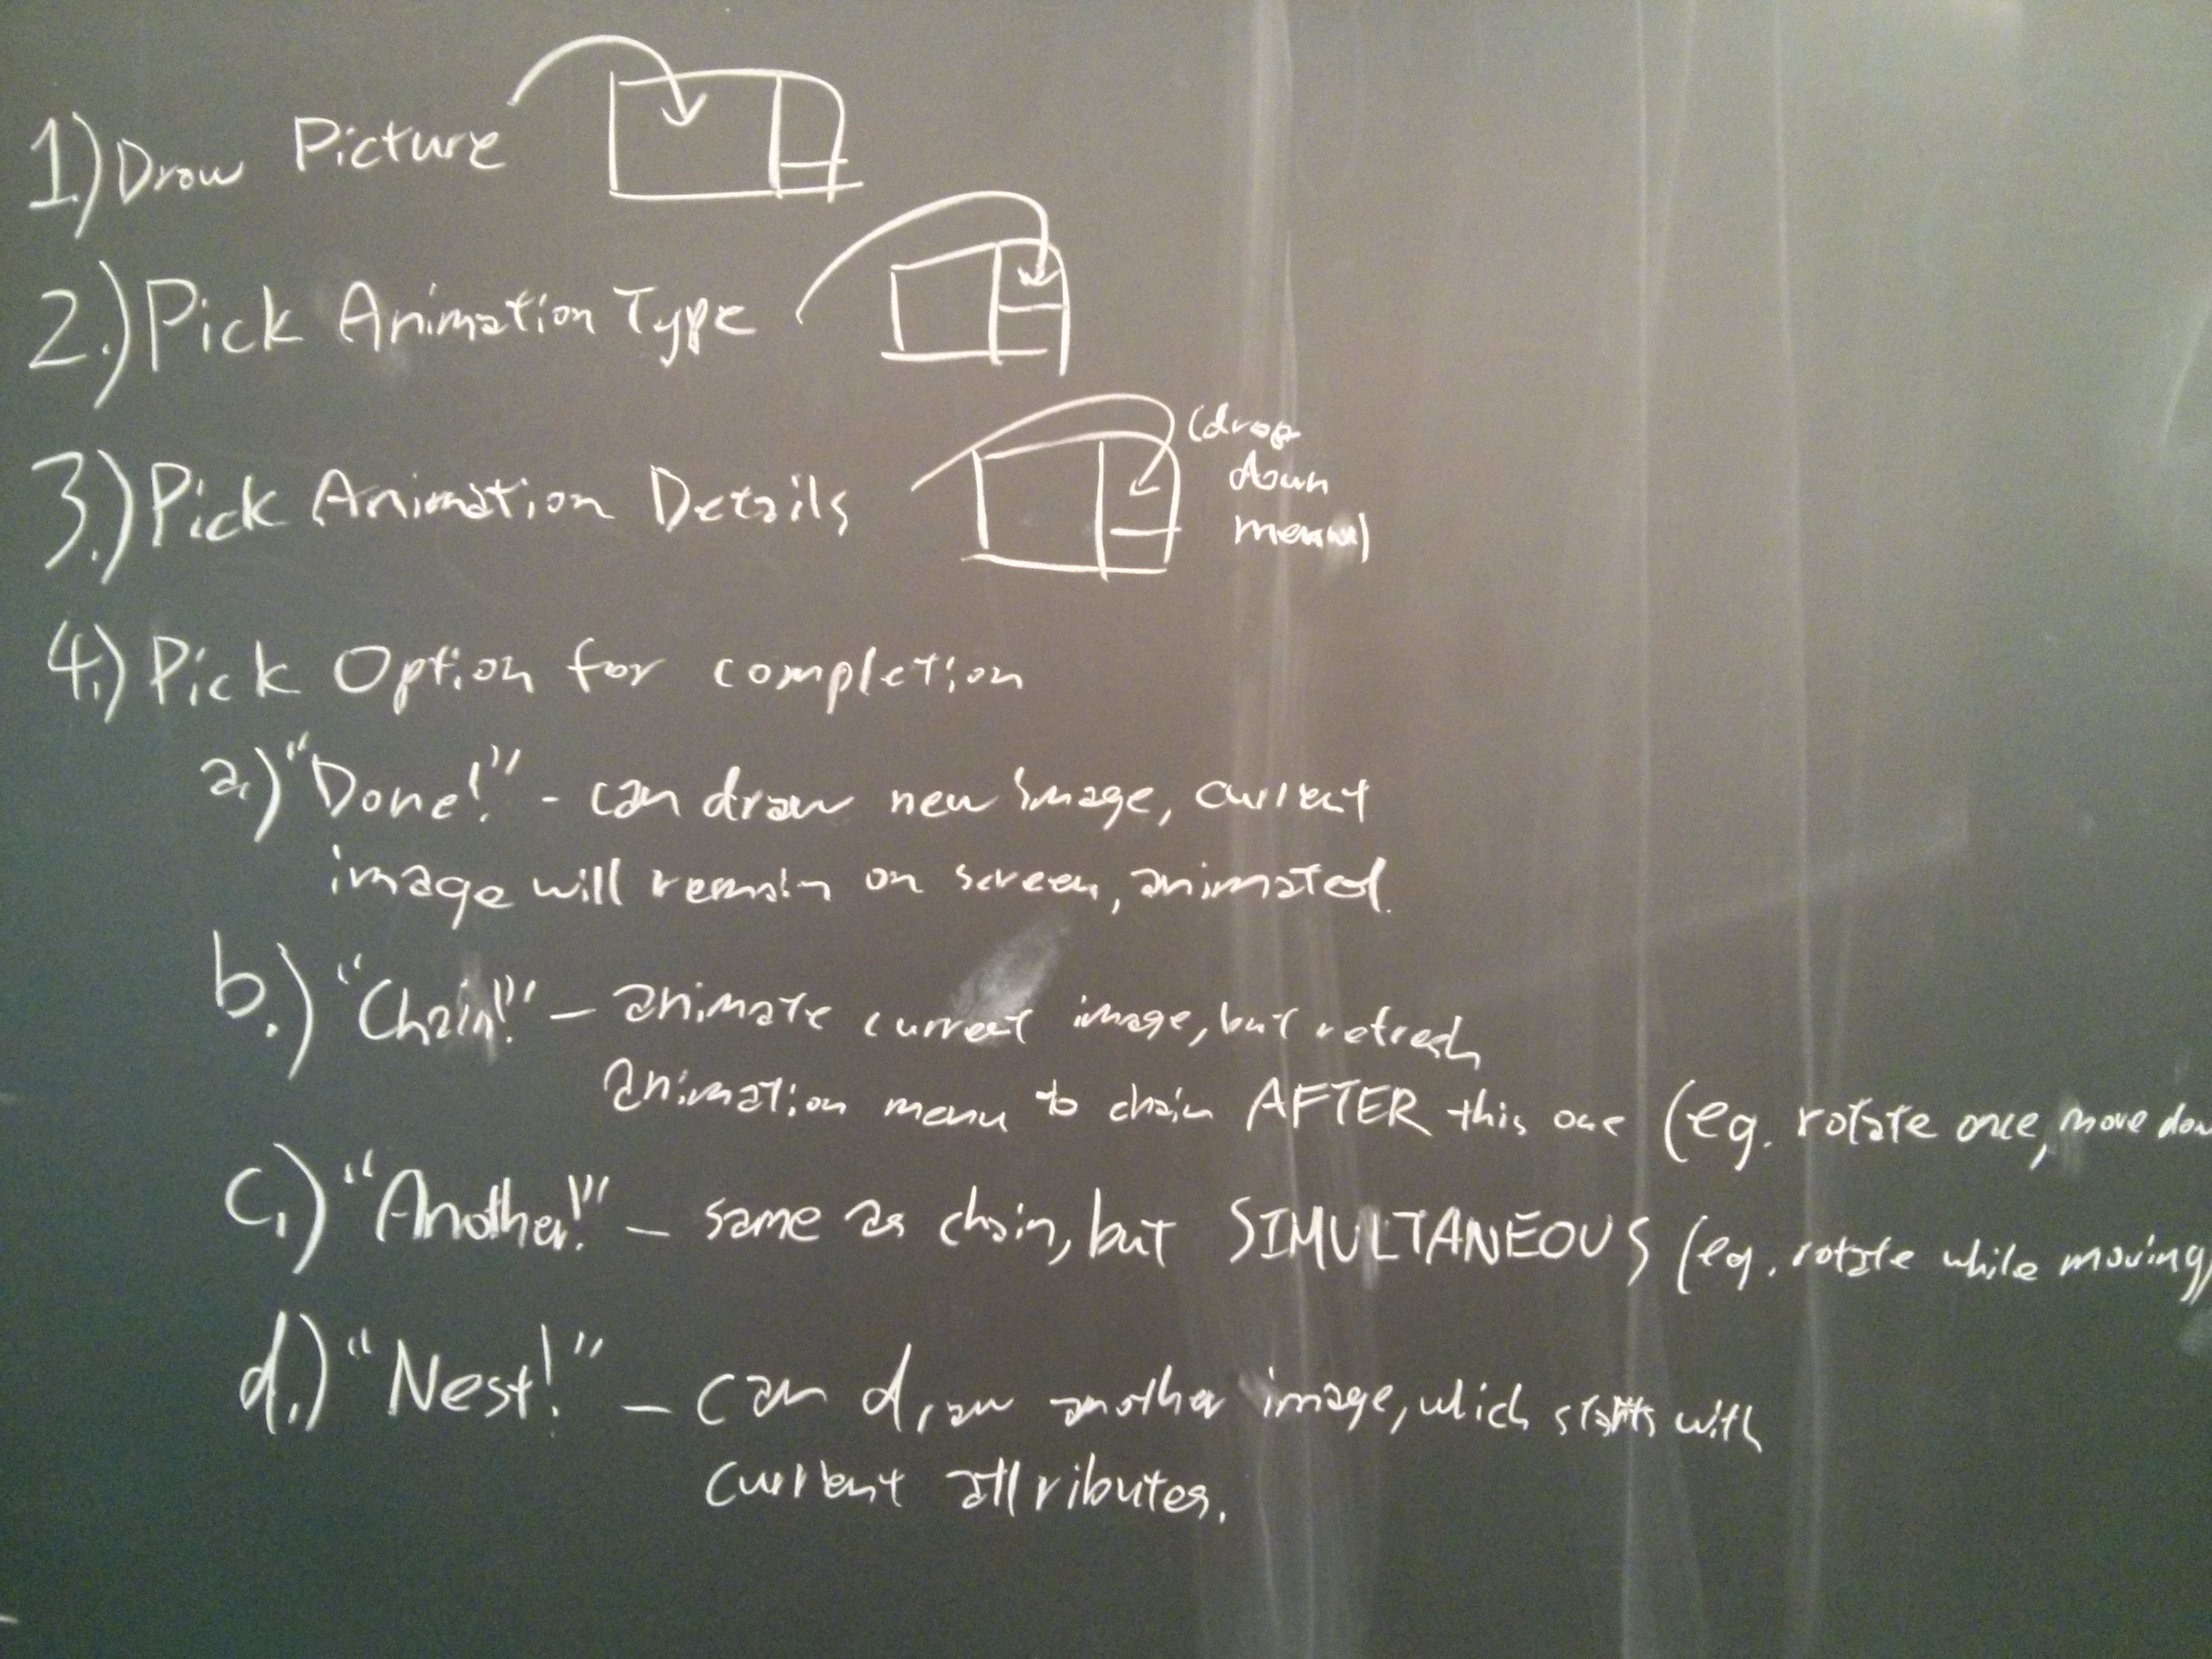 1.) Draw Picture
2.) Pick Animation Type
3.) Pick Animation Details
(drop
down
menu)
4.) Pick Option for completion
a.) "Done!" - can draw new image, current
image will remain on screen, animated.
b.) "Chain!" - animate current image, but refresh
animation menu to chain AFTER this one (eg. rotate once, move
c.) "Another!" - same as chain, but SIMULTANEOUS (eg. rotate while moving)
d.) "Nest!" - can draw another image, which starts with
current attributes.